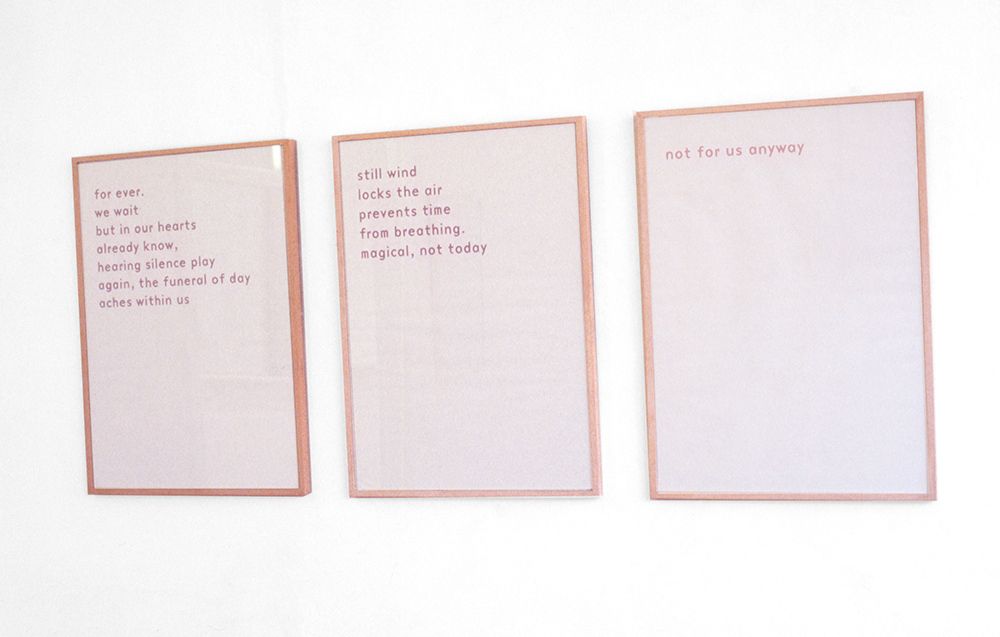 for ever.
we wait
but in our hearts
already know,
hearing silence play
again, the funeral of day
aches within us
still wind
locks the air
prevents time
from breathing.
magical, not today
not for us anyway